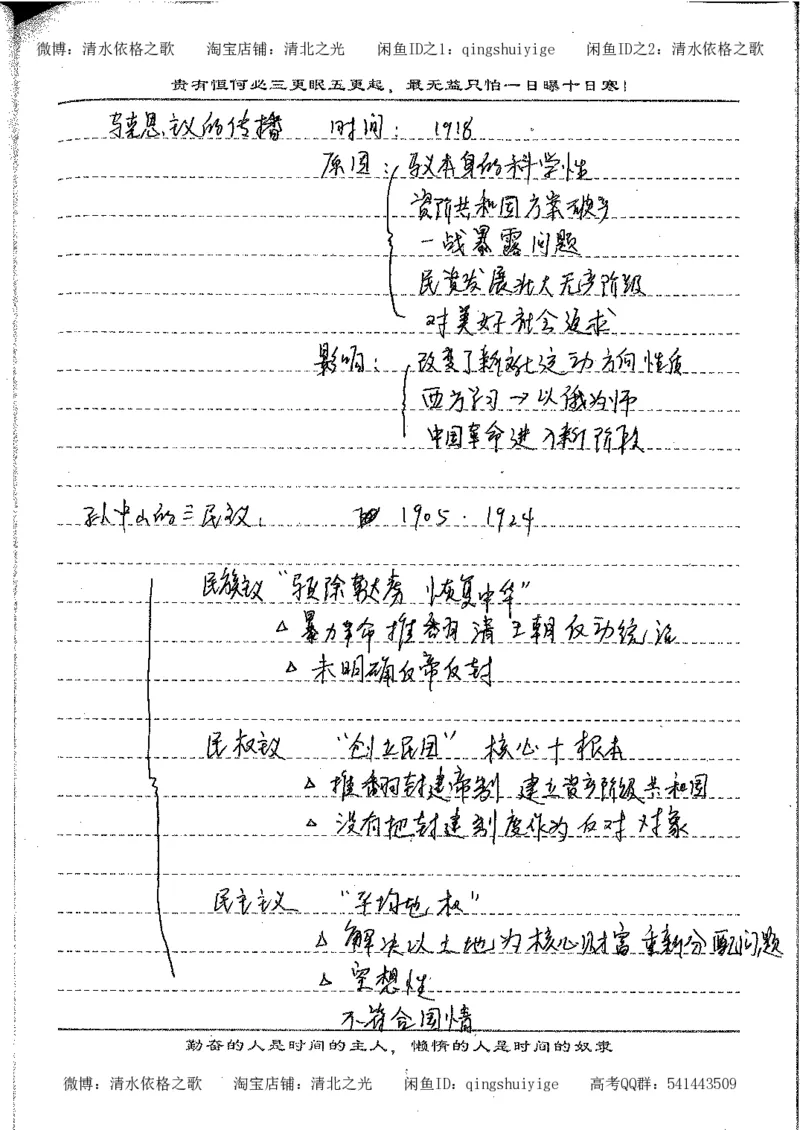 微博：清水依格之歌 淘宝店铺：清北之光 闲鱼ID之1：qingshuiyige 闲鱼ID之2：清水依格之歌
贵有恒何必三更眠五更起，最无益只怕一日曝十日寒！
马克思主义的传播 时间： 1918
原因： 马义本身的科学性
资阶共和国方案破产
一战暴露问题
民资发展壮大无产阶级
对美好社会追求
影响： 改变了新文化运动方向性质
西方学习→以俄为师
中国革命进入新阶段
孙中山的三民主义： 1905. 1924
民族主义 “驱除鞑虏 恢复中华”
△ 暴力革命推翻清王朝反动统治
△ 未明确反帝反封
民权主义 “创立民国” 核心+根本
△ 推翻封建帝制 建立资产阶级共和国
△ 没有把封建制度作为反对对象
民主主义 “平均地权”
△ 解决以土地为核心财富重新分配问题
△ 空想性
不符合国情
勤奋的人是时间的主人，懒惰的人是时间的奴隶
微博：清水依格之歌 淘宝店铺：清北之光 闲鱼ID：qingshuiyige 高考QQ群：541443509